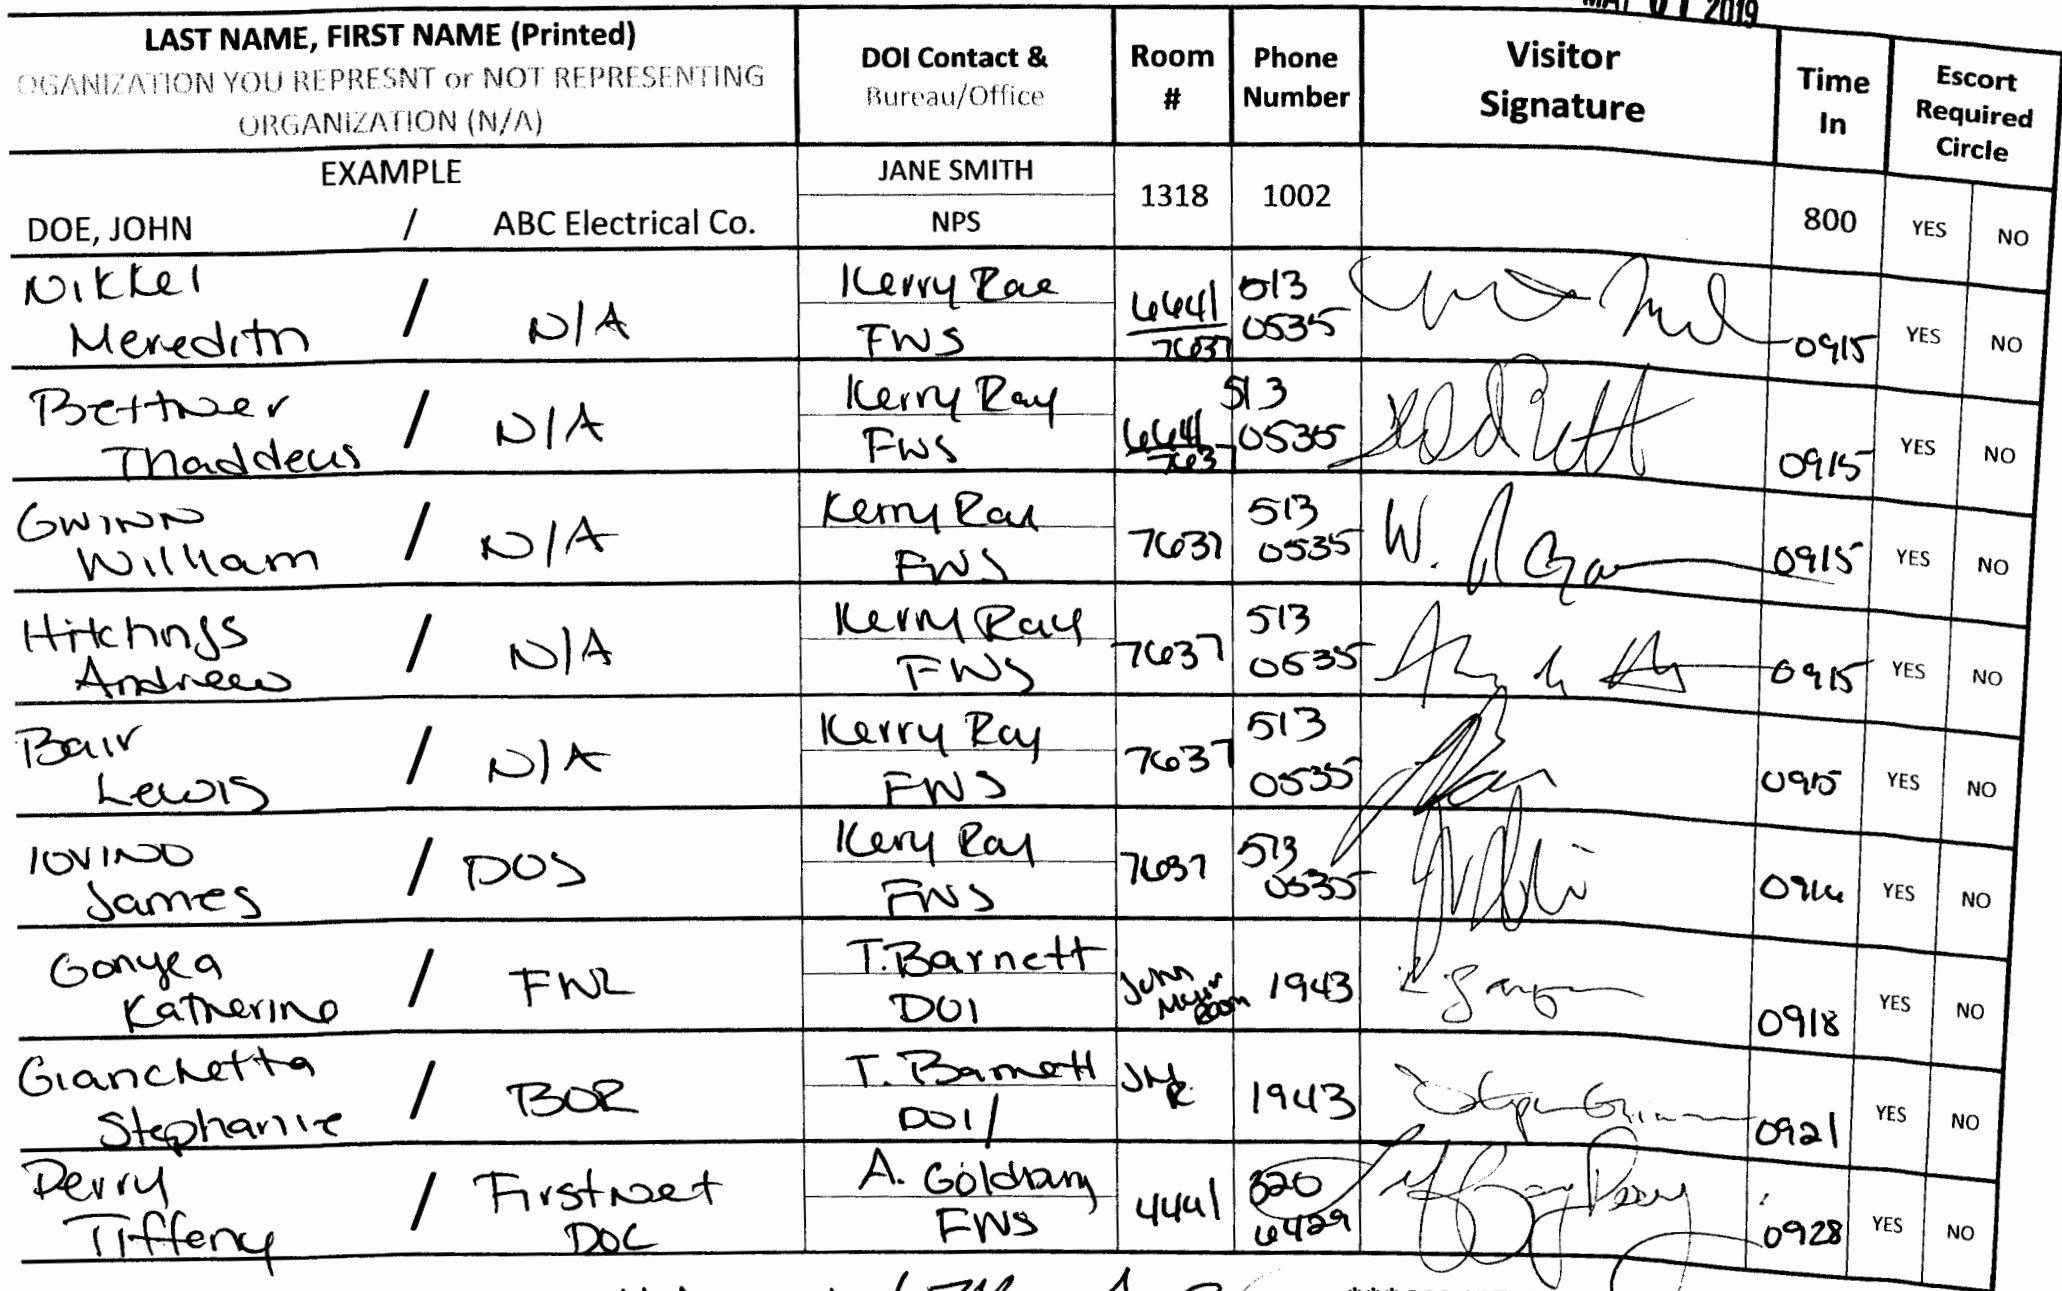 2019
LAST NAME, FIRST NAME (Printed)
OGANIZATION YOU REPRESNT or NOT REPRESENTING
ORGANIZATION (N/A)
DOI Contact &
Bureau/Office
Room
#
Phone
Number
Visitor
Signature
Time
In
Escort
Required
Circle
EXAMPLE
DOE, JOHN / ABC Electrical Co.
JANE SMITH
NPS
1318
1002
800
YES NO
Nikkel
Meredith
/ N/A
Kerry Rae
FWS
6641
7637
513
0535
0915
YES NO
Bettner
Thaddeus
/ N/A
Kerry Ray
FWS
6641
763
513
0535
0915
YES NO
Gwinn
William
/ N/A
Kerry Ray
FWS
7637
513
0535
0915
YES NO
Hitchings
Andrew
/ N/A
Kerry Ray
FWS
7637
513
0535
0915
YES NO
Bair
Lewis
/ N/A
Kerry Ray
FWS
7637
513
0535
0915
YES NO
Iovino
James
/ DOS
Kery Ray
FWS
7637
513
0535
YES NO
Gonyea
Katherine
/
T. Barnett
DOI
John
Muir
Room
1943
0918
YES NO
Gianchetta
Stephanie
/ BOR
T. Barnett
DOI/
JMR
1943
0921
YES NO
Perry
Tiffeny
/ Firstnet
DOC
A.
FWS
4441
820
6429
0928
YES NO